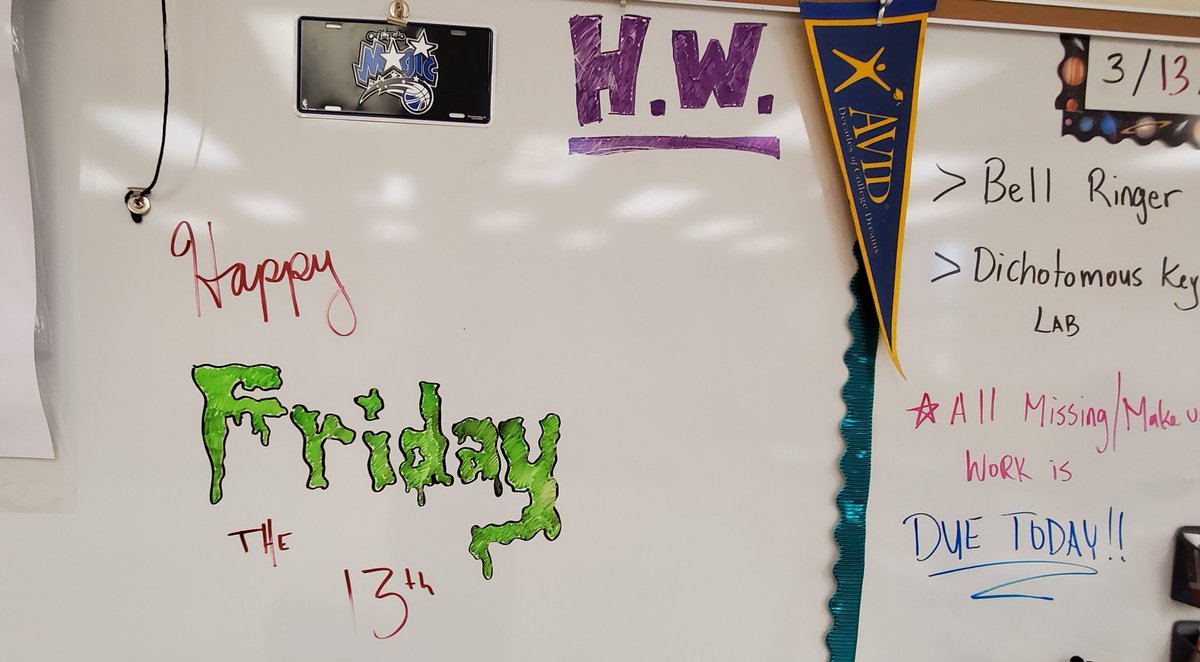 Orlando
Magic
H.W.
AVID
Decades of College Dreams
Happy
Friday
THE
13th
3/13
> Bell Ringer
> Dichotomous Key
LAB
☆ All Missing/Make
WORK is
DUE TODAY!!